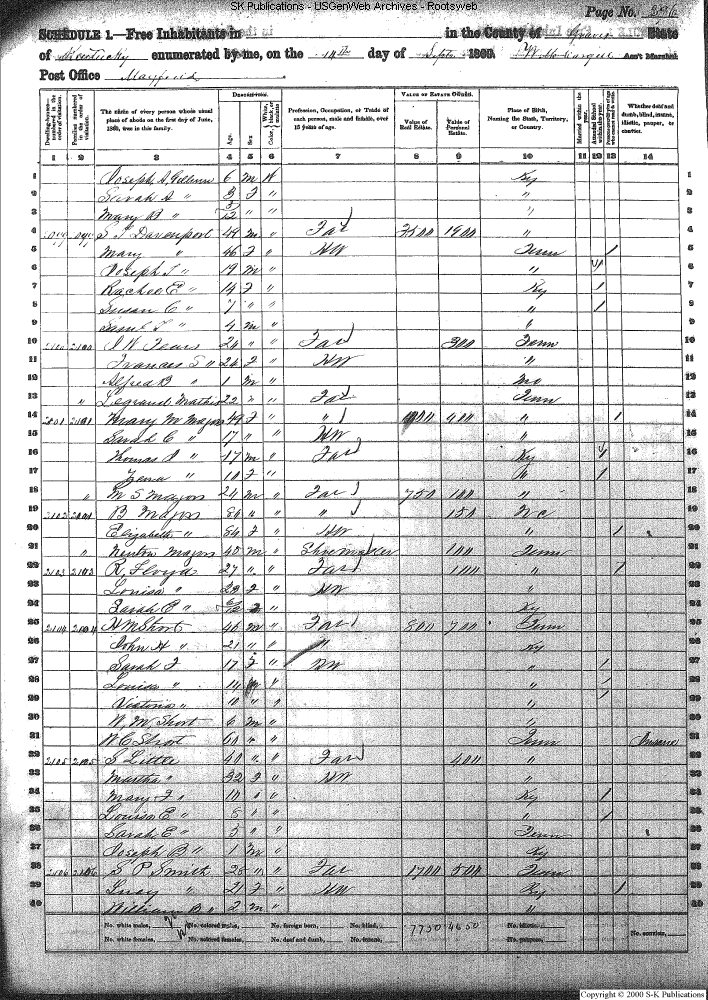 SK Publications - USGenWeb Archives - Rootsweb
Page No.
SCHEDULE 1.—Free Inhabitants in in the County of Graves State
of Kentucky enumerated by me, on the 14th day of Sept 1860. Ass't Marshal
Post Office Mayfield
Dwelling-houses—numbered in the order of visitation.
Families numbered in the order of visitation.
The name of every person whose usual place of abode on the first day of June, 1860, was in this family.
DESCRIPTION.
Age.
Sex.
White, black, or mulatto.
Color,
Profession, Occupation, or Trade of each person, male and female, over 15 years of age.
VALUE OF ESTATE OWNED.
Value of Real Estate.
Value of Personal Estate.
Place of Birth, Naming the State, Territory, or Country.
Married within the year.
Attended School within the year.
Whether deaf and dumb, blind, insane, idiotic, pauper, or convict.
1 2 3 4 5 6 7 8 9 10 11 12 13 14
1 Joseph A 6 m W Ky 1
2 Sarah A " 3 F " " 2
3 Mary B " 3/12 " " " 3
4 S T Davenport 49 m " Far 1900 " 4
5 Mary " 46 F " HW Tenn 1 5
6 Joseph T " 19 m " " 6
7 Rachel E " 14 F " Ky 1 7
8 Susan C " 7 " " " 1 8
9 Saml T " 4 m " " 9
10 2100 2100 J W Fears 24 " " Far 300 Tenn 10
11 Frances S " 24 F " HW " 11
12 Alfred B " 1 m " Mo 12
13 " Legrand Mathis 22 " " Far Tenn 13
14 2101 2101 Mary M Majors 49 F " " 400 " 1 14
15 Sarah C " 17 " " HW " 15
16 Thomas J " 17 m " Far Ky 16
17 " 10 F " " 1 17
18 " M S Majors 24 m " Far 750 100 " 18
19 2102 B Majors 84 " " " 150 N C 19
20 Elizabeth " 84 F " HW " 1 20
21 " Newton Majors 45 m " Shoemaker 100 Tenn 21
22 2103 2103 R Floyd 27 " " Far 100 " 1 22
23 Louisa " 29 F " HW " 23
24 Sarah C " F " Ky 24
25 2104 2104 H M Short 46 m " Far 800 700 Tenn 25
26 John H " 21 " " " Ky 26
27 Sarah F 17 F " HW " 1 27
28 Louisa " 14 " " 1 28
29 Victoria " 10 " " " 1 29
30 W. M. Short 6 m " " 30
31 W C Short 60 " " Tenn Insane 31
32 2105 2105 S Little 40 " " Far 400 " 32
33 Martha " 32 F " HW " 33
34 Mary F " 10 " " Ky 1 34
35 Louisa E " 8 " " " 1 35
36 Sarah E " 3 " " Tenn 36
37 Joseph B " 1 m " Ky 37
38 2106 2106 S P Smith 25 " " Far 1700 500 Tenn 38
39 Lucy " 21 F " HW Ky 1 39
40 William B " 2 m " " 40
No. white males, No. colored males, No. foreign born, No. blind, 7750 4650 No. idiotic,
No. white females, No. colored females, No. deaf and dumb, No. insane, No. paupers, No. convicts,
Copyright © 2000 S-K Publications